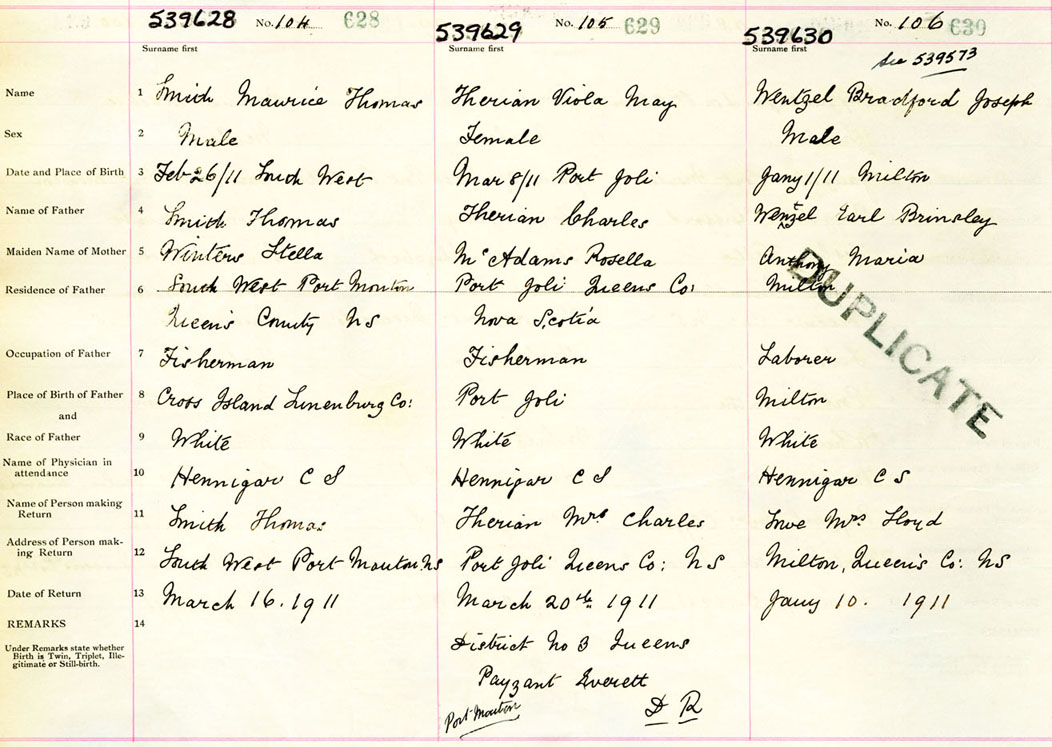 539628 No. 104 628
539629 No. 105 629
539630 No. 106 630
Surname first Surname first Surname first See 539573
Name 1 Smith Maurice Thomas Therian Viola May Wentzel Bradford Joseph
Sex 2 Male Female Male
Date and Place of Birth 3 Feb 26/11 South West Mar 8/11 Port Joli Jany 1/11 Milton
Name of Father 4 Smith Thomas Therian Charles Wentzel Earl Brinsley
Maiden Name of Mother 5 Winters Stella McAdams Rosella Anthony Maria
Residence of Father 6 South West Port Mouton Port Joli Queens Co: Milton
Queens County NS Nova Scotia
DUPLICATE
Occupation of Father 7 Fisherman Fisherman Laborer
Place of Birth of Father 8 Cross Island Lunenburg Co: Port Joli Milton
and
Race of Father 9 White White White
Name of Physician in
attendance 10 Hennigar C S Hennigar C S Hennigar C S
Name of Person making
Return 11 Smith Thomas Therian Mrs Charles Lowe Mrs Lloyd
Address of Person mak-
ing Return 12 South West Port Mouton NS Port Joli Queens Co: NS Milton, Queens Co: NS
Date of Return 13 March 16. 1911 March 20th 1911 Jany 10. 1911
REMARKS 14
Under Remarks state whether
Birth is Twin, Triplet, Ille-
gitimate or Still-birth.
District No 3 Queens
Payzant Everett
Port Mouton D R